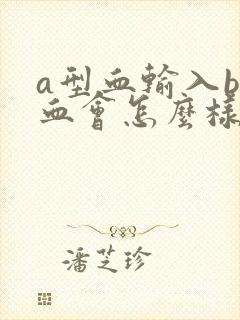 a型血輸入b
血會怎麼樣
潘芝珍